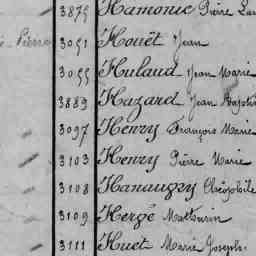 3875 Hamonic Pierre
Pierre 3051 Houët Jean
3055 Hulaud Jean Marie
3889 Hazard Jean
3097 Henry François Marie
3103 Henry Pierre Marie
3108 Théophile
3109 Hergé Mathurin
3111 Huet Marie Joseph